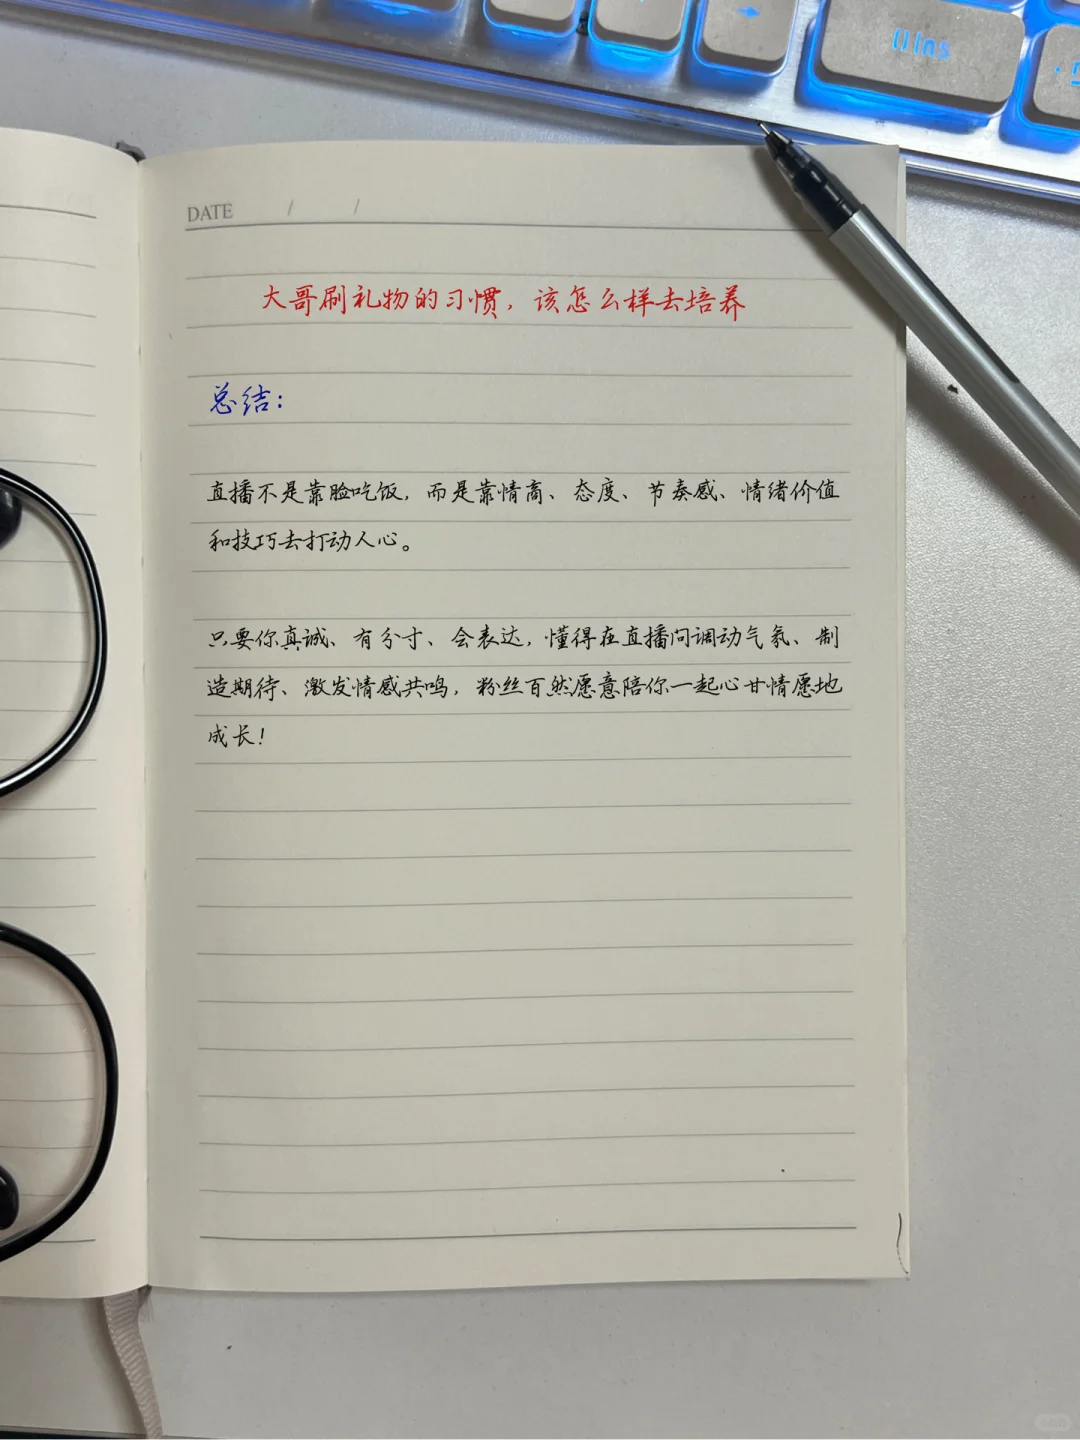 Ins
DATE / /
大哥刷礼物的习惯，该怎么样去培养
总结：
直播不是靠脸吃饭，而是靠情商、态度、节奏感、情绪价值
和技巧去打动人心。
只要你真诚、有分寸、会表达，懂得在直播间调动气氛、制
造期待、激发情感共鸣，粉丝自然愿意陪你一起心甘情愿地
成长！